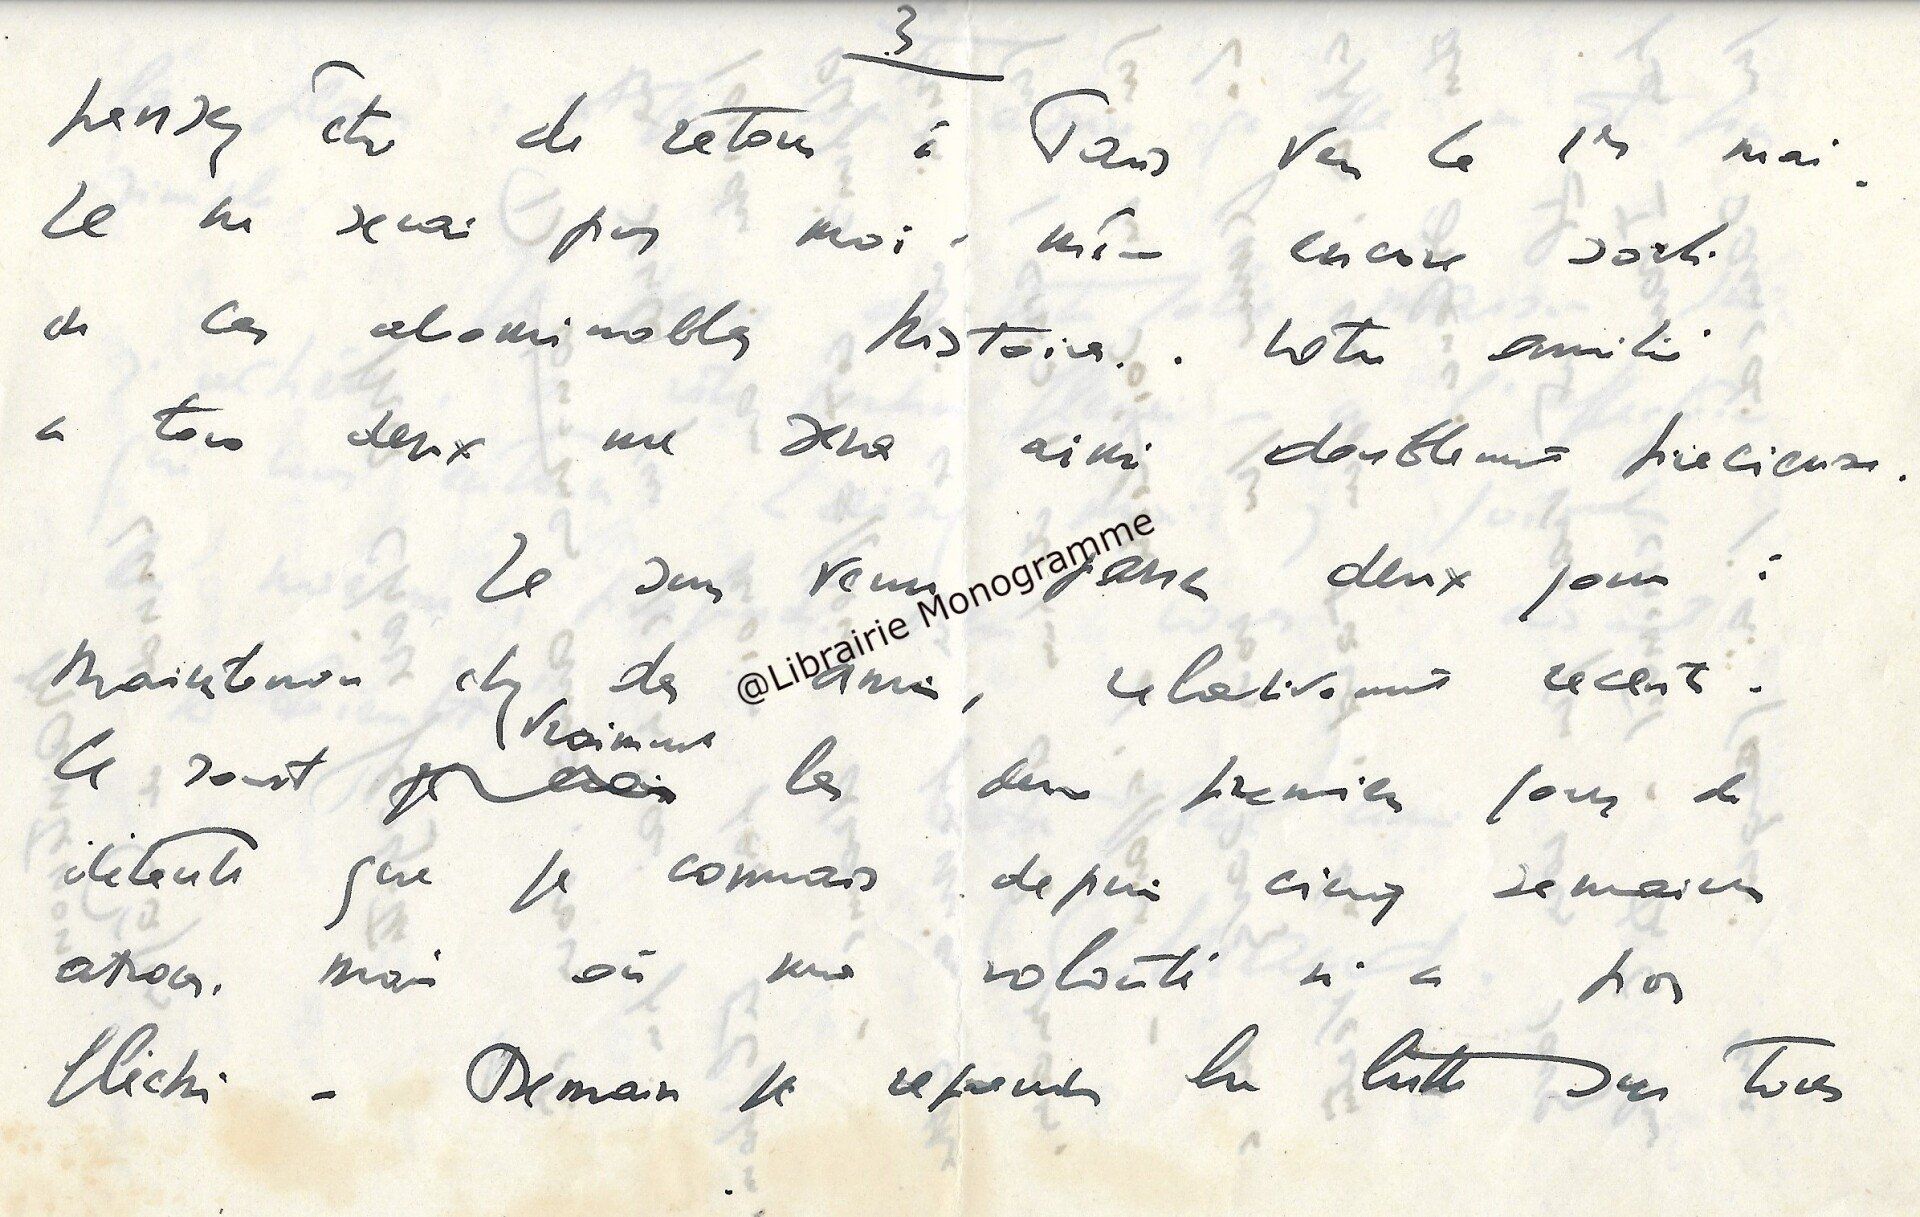 3
pensez être de retour à Paris vers le 1er mai.
Je ne serai pas moi-même encore sorti
de ces abominables histoires. Votre amitié
a tous deux me sera ainsi doublement précieuse.
Je suis venu passer deux jours à
Maintenon chez des amis, relativement récents.
vraiment
Ce sont les deux premiers jours de
détente que je connais depuis cinq semaines
atroces, mais où ma volonté n'a pas
fléchi - Demain je reprends la lutte sur tous
@Librairie Monogramme